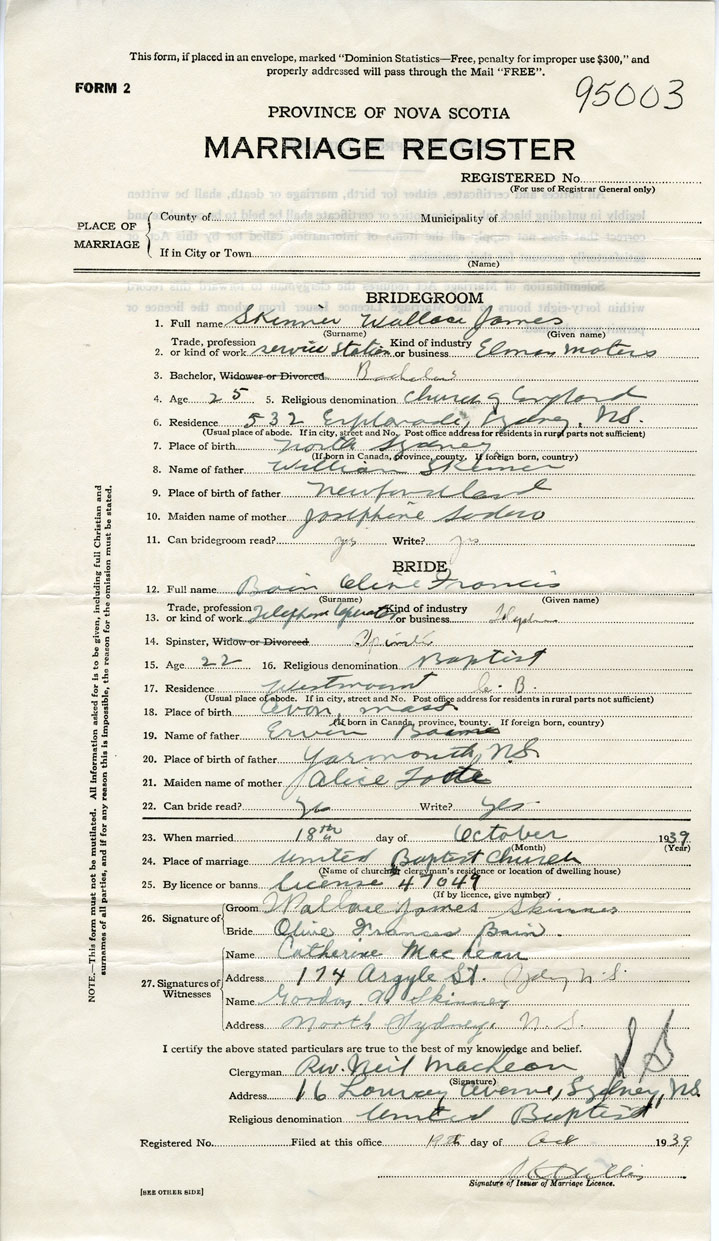 This form, if placed in an envelope, marked "Dominion Statistics—Free, penalty for improper use $300," and
properly addressed will pass through the Mail "FREE".
FORM 2
95003
PROVINCE OF NOVA SCOTIA
MARRIAGE REGISTER
REGISTERED No.
(For use of Registrar General only)
PLACE OF MARRIAGE
County of Municipality of
If in City or Town
(Name)
BRIDEGROOM
1. Full name Skinner Wallace James
(Surname) (Given name)
Trade, profession Kind of industry
2. or kind of work service Station or business Motors
3. Bachelor, Widower or Divorced Bachelor
4. Age 25 5. Religious denomination Church of England
6. Residence 532 Esplanade, Sydney, N.S.
(Usual place of abode. If in city, street and No. Post office address for residents in rural parts not sufficient)
7. Place of birth North Sydney
(If born in Canada, province, county. If foreign born, country)
8. Name of father William Skinner
9. Place of birth of father Newfoundland
10. Maiden name of mother Josephine
11. Can bridegroom read? yes Write? yes
BRIDE
12. Full name Bain Olive Francis
(Surname) (Given name)
Trade, profession Kind of industry
13. or kind of work Telephone Operator or business
14. Spinster, Widow or Divorced
15. Age 22 16. Religious denomination Baptist
17. Residence Westmount C. B.
(Usual place of abode. If in city, street and No. Post office address for residents in rural parts not sufficient)
18. Place of birth Avon, Mass
(If born in Canada, province, county. If foreign born, country)
19. Name of father Ervin
20. Place of birth of father Yarmouth, N.S.
21. Maiden name of mother Alice Foote
22. Can bride read? Yes Write? Yes
23. When married 18th day of October 1939
(Month) (Year)
24. Place of marriage United Baptist Church
(Name of church, clergyman's residence or location of dwelling house)
25. By licence or banns License 47049
(If by licence, give number)
26. Signature of
Groom Wallace James Skinner
Bride Olive Frances Bain.
27. Signatures of Witnesses
Name Catherine MacLean
Address 174 Argyle St. Sydney N.S.
Name Gordon A. Skinner
Address North Sydney, N.S.
I certify the above stated particulars are true to the best of my knowledge and belief.
Clergyman Rev. Neil MacLean
(Signature)
Address 16 Avenue, Sydney, N.S.
Religious denomination United Baptist
Registered No. Filed at this office 19th day of Oct 1939
Signature of Issuer of Marriage Licence.
[SEE OTHER SIDE]
NOTE.—This form must not be mutilated. All information asked for is to be given, including full Christian and
surnames of all parties, and if for any reason this is impossible, the reason for the omission must be stated.